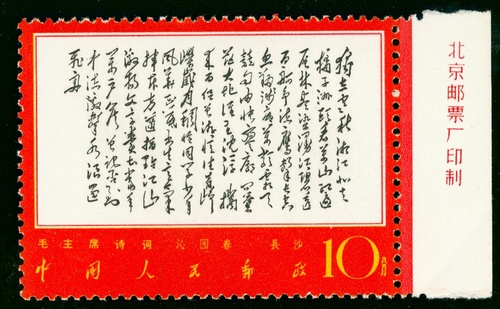 独立寒秋湘江北去
橘子洲头看万山红遍
层林尽染漫江碧透
百舸争流鹰击长空
鱼翔浅底万类霜天
竞自由怅寥廓问
苍茫大地谁主沉浮携
来百侣曾游忆往昔峥
嵘岁月稠恰同学少年
风华正茂书生意气
挥斥方遒指点江山
激扬文字粪土当年
万户侯曾记否到
中流击水浪遏
飞舟
毛主席诗词 沁园春 长沙
中国人民邮政 10八分
北京邮票厂印制